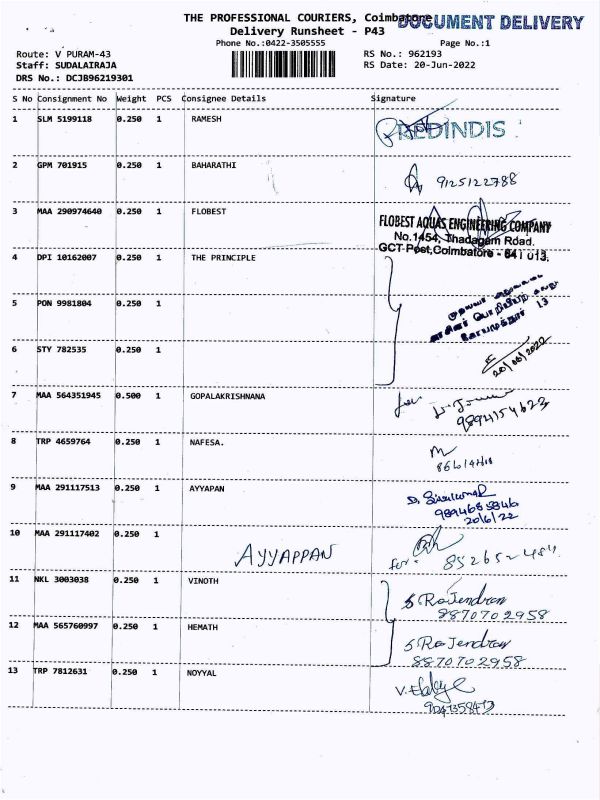 THE PROFESSIONAL COURIERS, Coimbatore
DOCUMENT DELIVERY
Delivery Runsheet - P43
Phone No.:0422-3505555
Page No.:1
Route: V PURAM-43
RS No.: 962193
Staff: SUDALAIRAJA
RS Date: 20-Jun-2022
DRS No.: DCJB96219301
S No Consignment No Weight PCS Consignee Details Signature
1 SLM 5199118 0.250 1 RAMESH
REDINDIS
2 GPM 701915 0.250 1 BAHARATHI
9125122788
3 MAA 290974640 0.250 1 FLOBEST
FLOBEST AQUAS ENGINEERING COMPANY
No.1454, Thadagam Road.
GCT Post, Coimbatore - 641 013.
4 DPI 10162007 0.250 1 THE PRINCIPLE
5 PON 9981804 0.250 1
13
6 STY 782535 0.250 1
20/06/2022
7 MAA 564351945 0.500 1 GOPALAKRISHNANA
for
9894154623
8 TRP 4659764 0.250 1 NAFESA.
9 MAA 291117513 0.250 1 AYYAPAN
D. Sivakumar
9894685846
20/6/22
10 MAA 291117402 0.250 1
AYYAPPAN
for.
11 NKL 3003038 0.250 1 VINOTH
S Rajendran
8870702958
12 MAA 565760997 0.250 1 HEMATH
S Rajendran
8870702958
13 TRP 7812631 0.250 1 NOYYAL